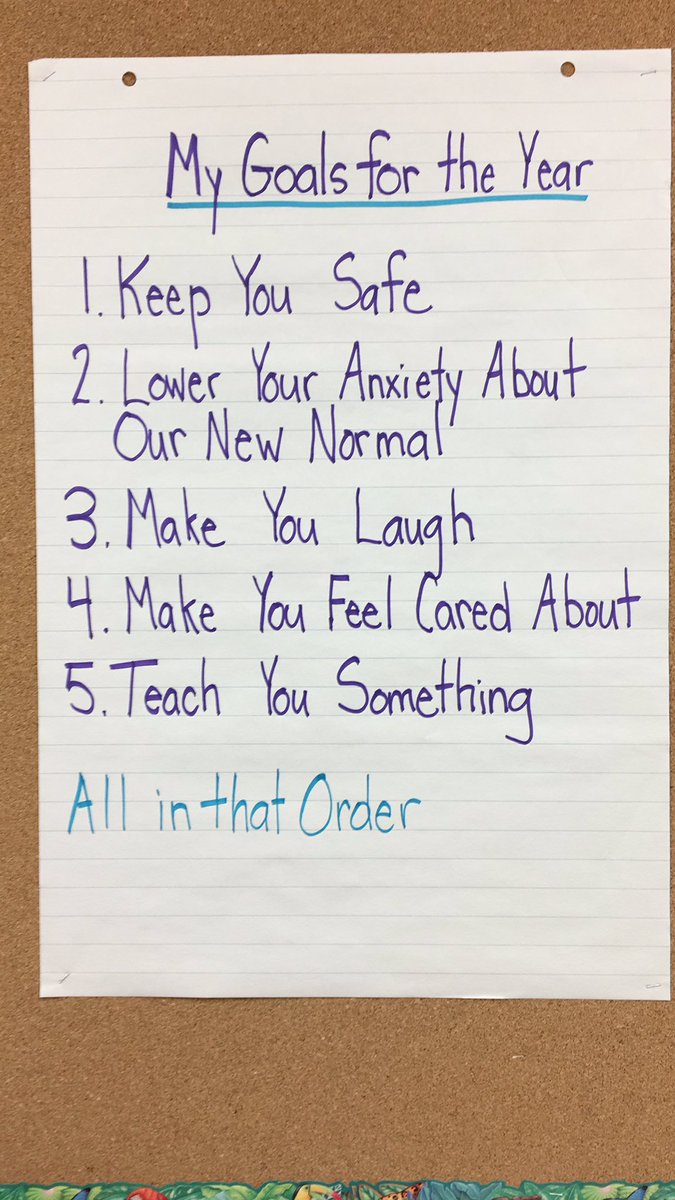 My Goals for the Year
1. Keep You Safe
2. Lower Your Anxiety About
Our New Normal
3. Make You Laugh
4. Make You Feel Cared About
5. Teach You Something
All in that Order